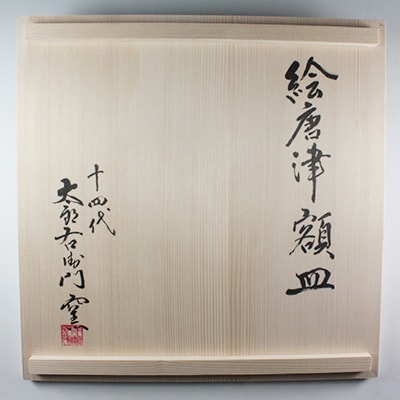 絵唐津 額皿
十四代
太郎右衛門 窯